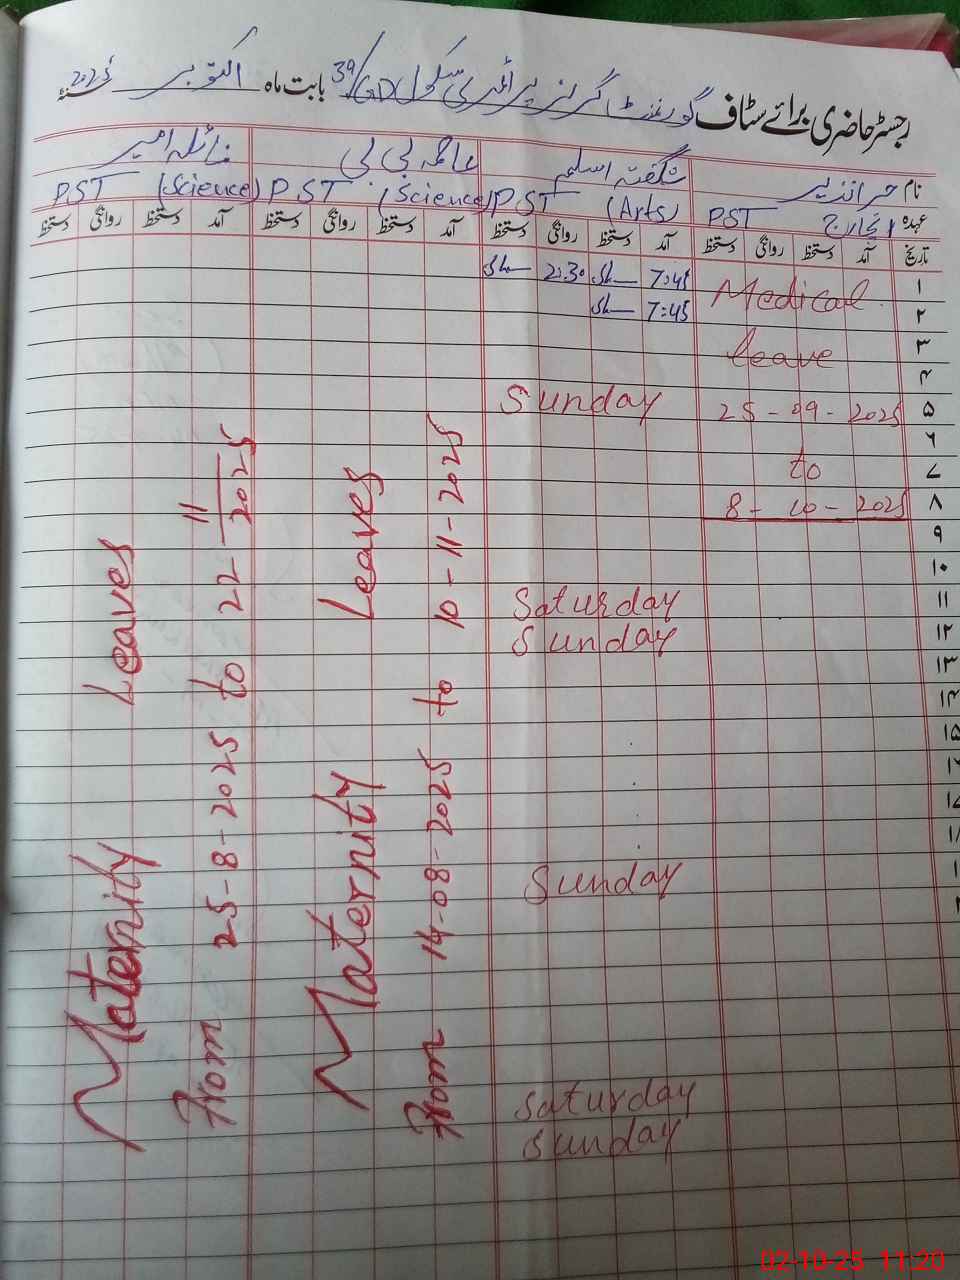 رجسٹر حاضری برائے سٹاف گورنمنٹ گرلز پرائمری سکول 39/GD بابت ماہ اکتوبر 2025ء سنہ
نام حرا نذیر شگفتہ اسلم عاصمہ بی بی نائلہ امیر
عہدہ انچارج PST PST (Arts) PST (Science) PST (Science)
تاریخ آمد دستخط روانگی دستخط آمد دستخط روانگی دستخط آمد دستخط روانگی دستخط آمد دستخط روانگی دستخط
۱ 7:45 2:30
Medical
۲ 7:45
۳ leave
۴
۵ 25-09-2025 Sunday
۶
۷ to
۸ 8-10-2025
۹
۱۰
۱۱ Saturday
۱۲ Sunday
۱۳
۱۴
۱۵
Sunday
Saturday
Sunday
Maternity Leaves
From 14-08-2025 to 10-11-2025
Maternity Leaves
From 25-8-2025 to 22-11-2025
02-10-25 11:20